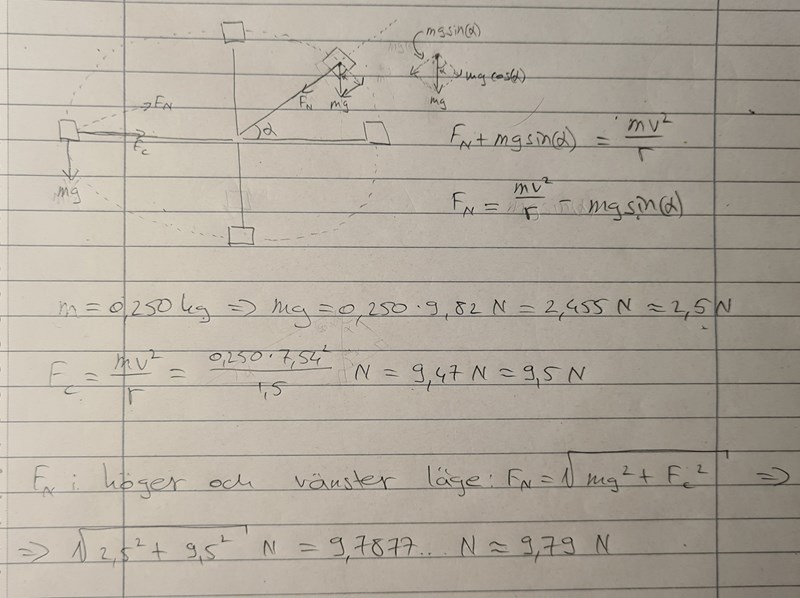 mgsin(α)
mg cos(α)
F_N
mg
α
mg
F_N
F_c
mg
F_N + mgsin(α) = mv²/r
F_N = mv²/r - mgsin(α)
m = 0,250 kg ⇒ mg = 0,250 · 9,82 N = 2,455 N ≈ 2,5 N
F_c = mv²/r = 0,250 · 7,54²/1,5 N = 9,47 N ≈ 9,5 N
F_N i höger och vänster läge: F_N = √(mg² + F_c²) ⇒
⇒ √(2,5² + 9,5²) N = 9,7877... N ≈ 9,79 N